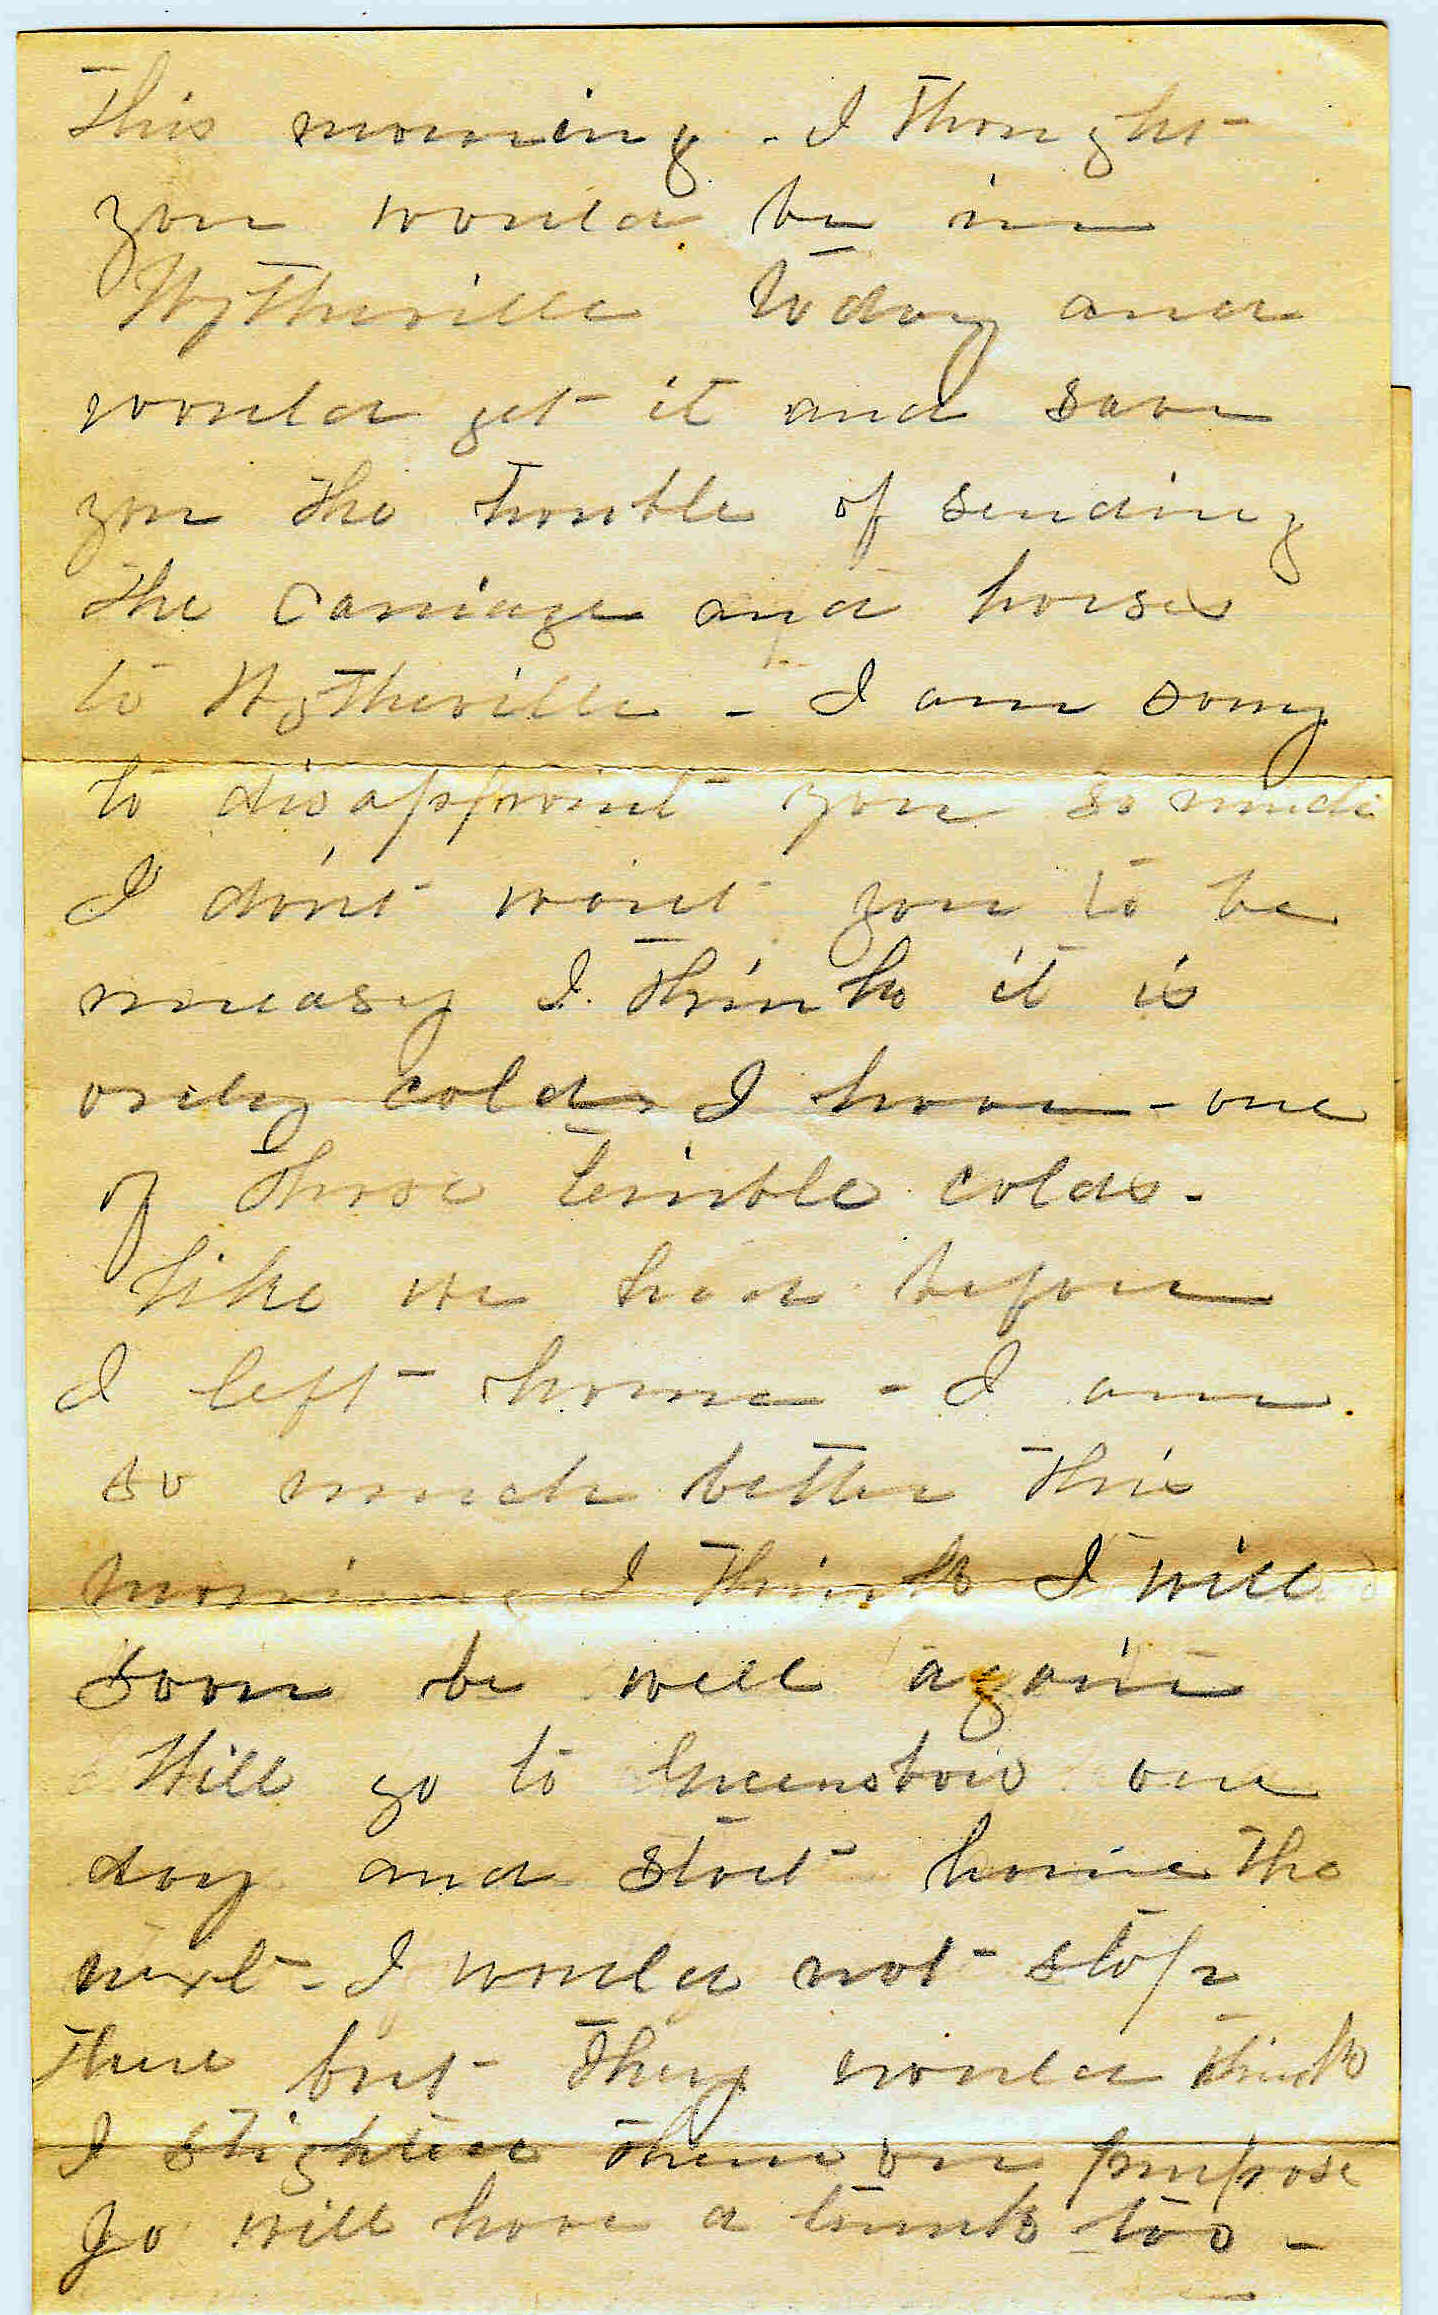 this morning - I thought
you would be in
Wytheville today and
would get it and save
you the trouble of sending
the carriage and horses
to Wytheville - I am sorry
to disappoint you so much
I don't want you to be
uneasy I think it is
only cold I have - one
of those terrible colds -
like we had before
I left home - I am
so much better this
morning I think I will
soon be well again
Will go to Greensboro one
day and start home the
next - I would not stop
there but they would think
I slighted them on purpose
Jo will have a trunk too -